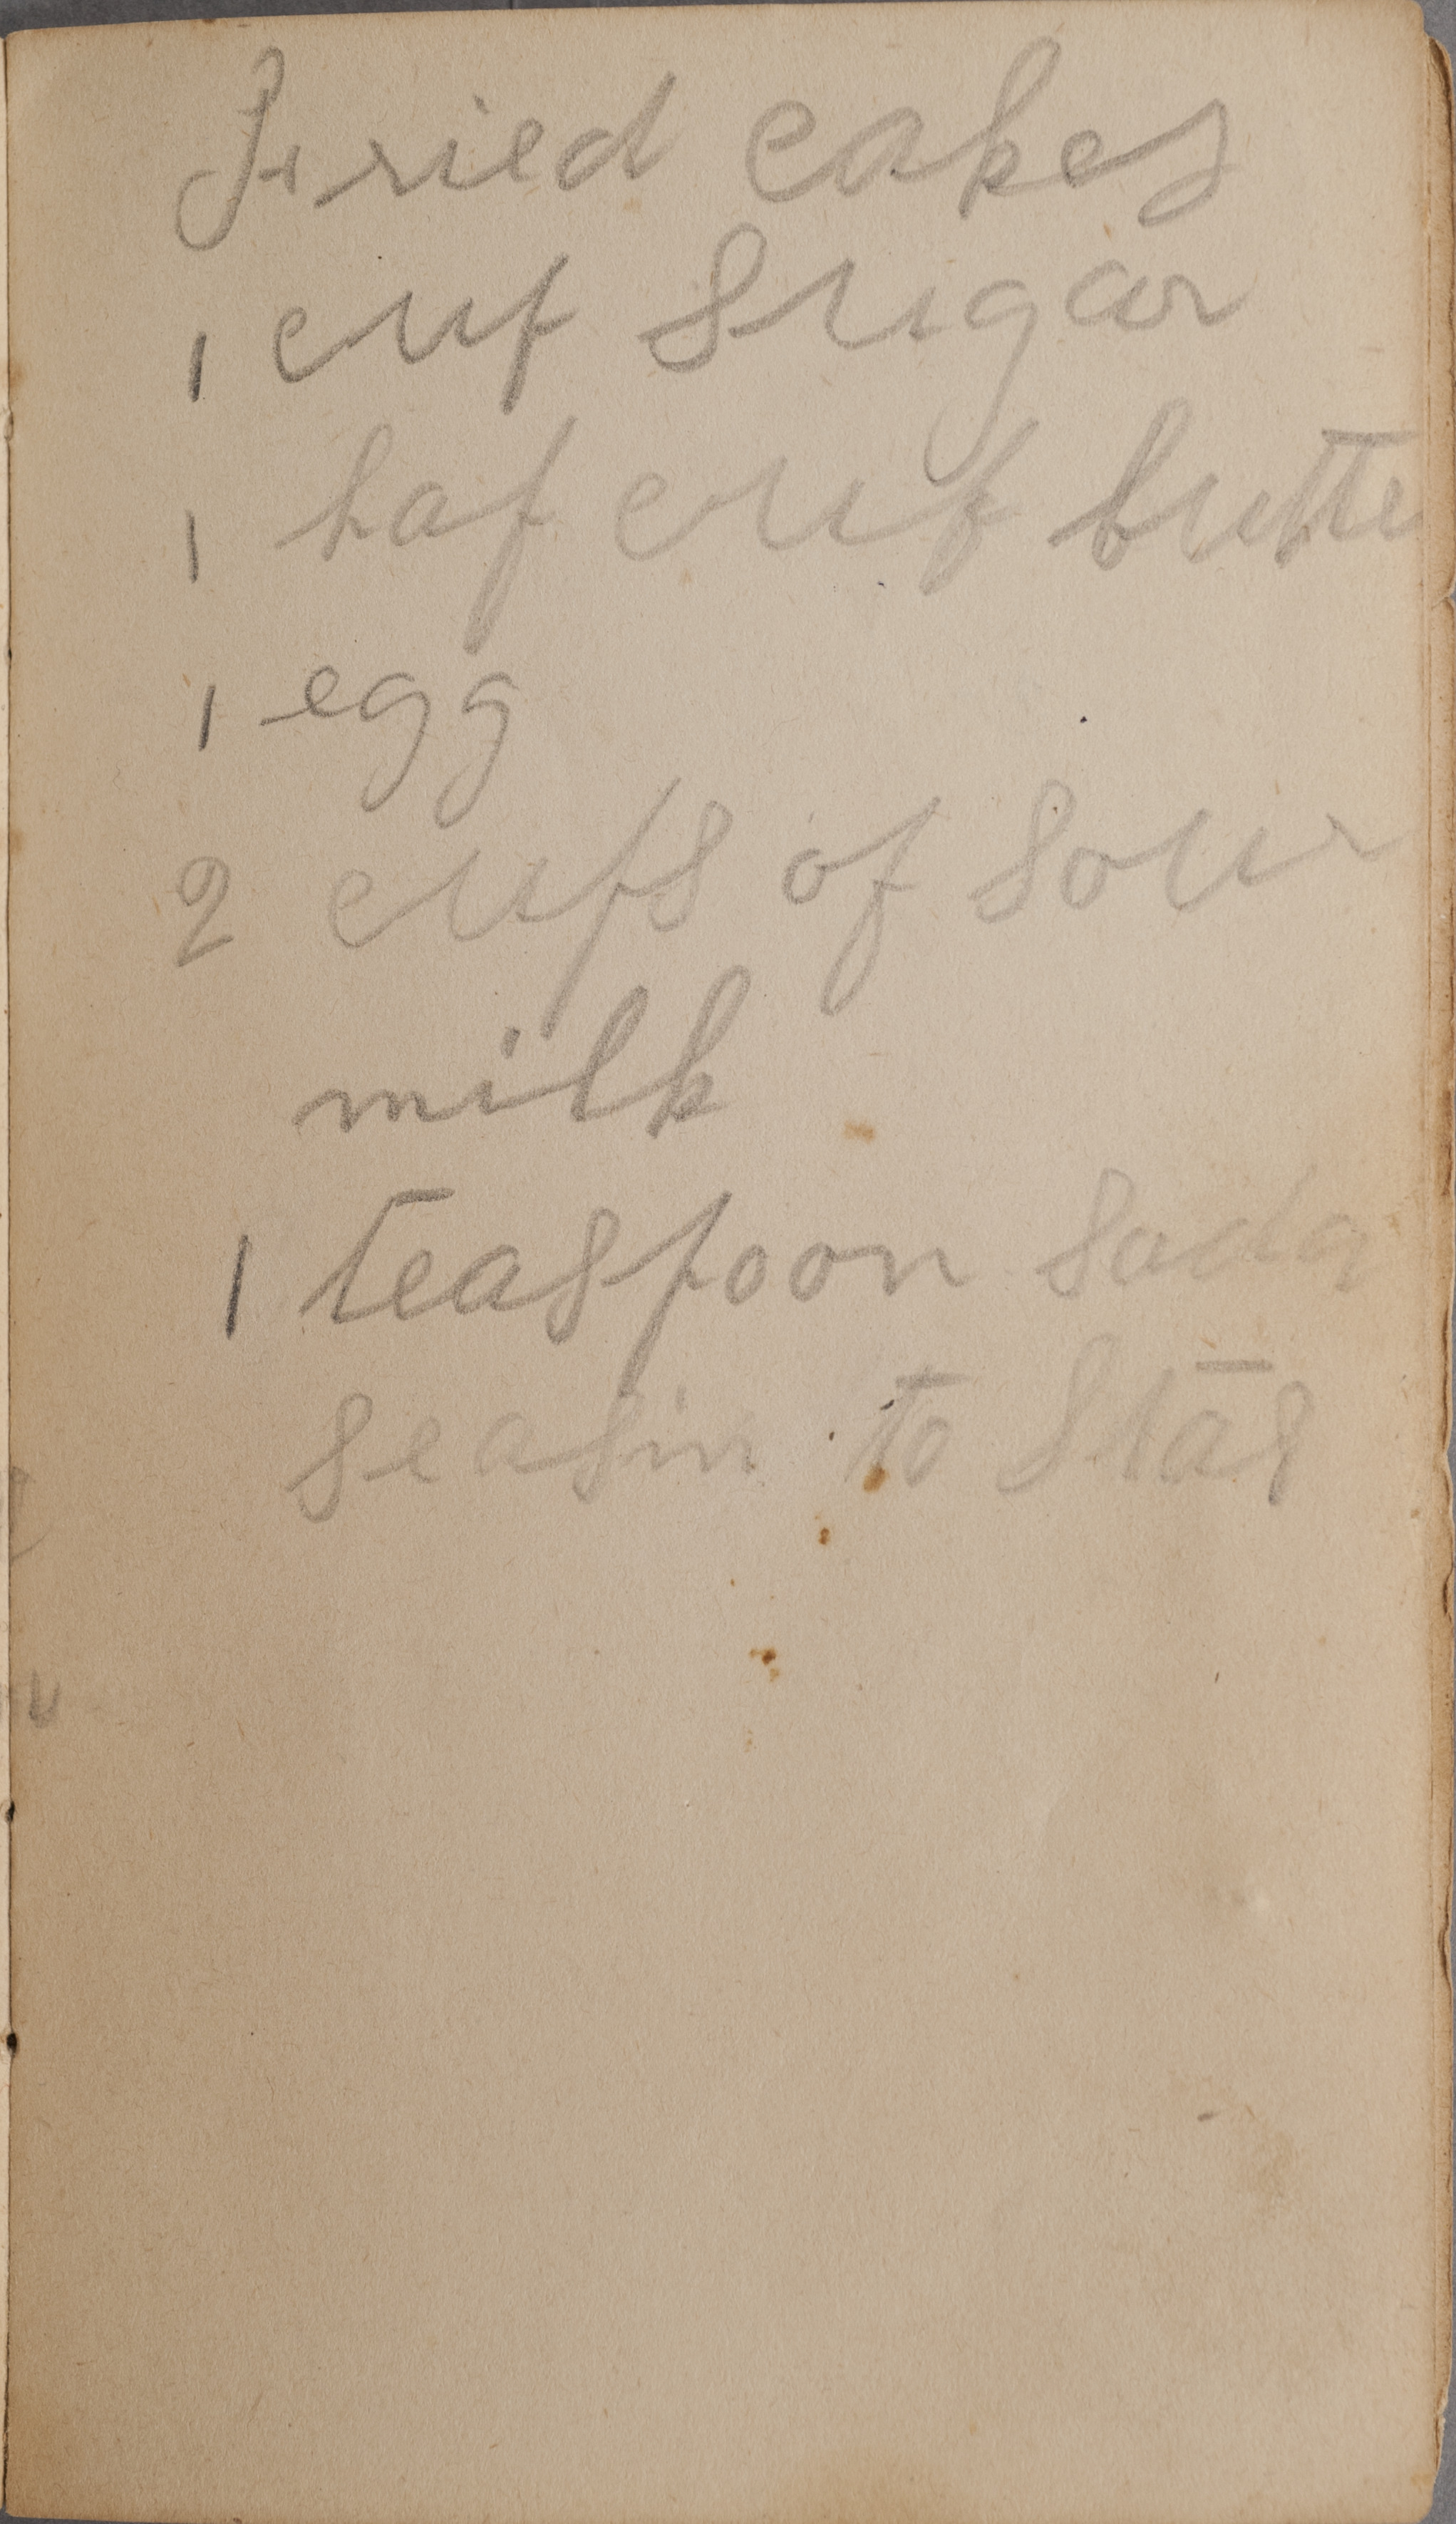 Fried cakes
1 cup Sugar
1 haf cup butte
1 egg
2 cups of Sour
milk
1 teaspoon Soda
seasin to